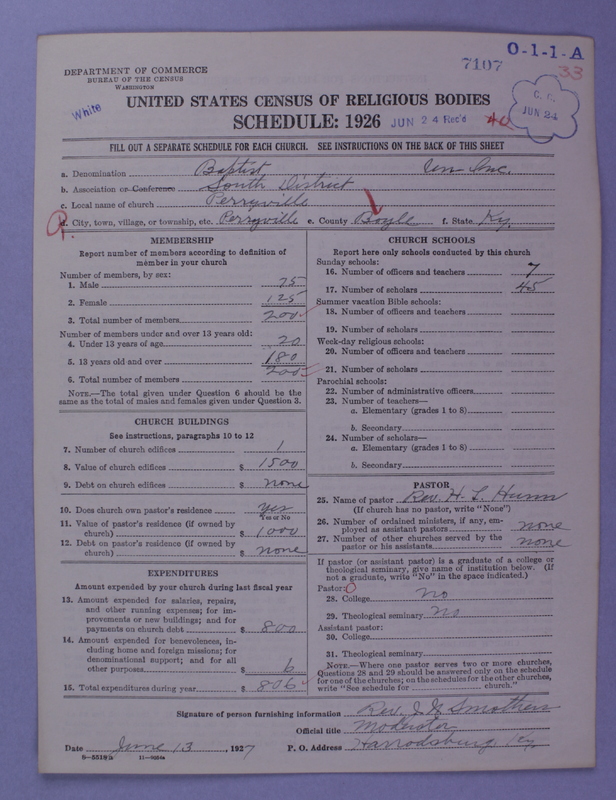 O-1-1-A
7107
33
DEPARTMENT OF COMMERCE
BUREAU OF THE CENSUS
WASHINGTON
White
C. C.
JUN 24
UNITED STATES CENSUS OF RELIGIOUS BODIES
SCHEDULE: 1926
JUN 24 Rec'd
FILL OUT A SEPARATE SCHEDULE FOR EACH CHURCH. SEE INSTRUCTIONS ON THE BACK OF THIS SHEET
a. Denomination Baptist
b. Association or Conference South District
c. Local name of church Perryville
d. City, town, village, or township, etc. Perryville e. County Boyle f. State Ky.
MEMBERSHIP
Report number of members according to definition of
member in your church
Number of members, by sex:
1. Male 75
2. Female 125
3. Total number of members 200
Number of members under and over 13 years old:
4. Under 13 years of age 20
5. 13 years old and over 180
6. Total number of members 200
NOTE.—The total given under Question 6 should be the
same as the total of males and females given under Question 3.
CHURCH BUILDINGS
See instructions, paragraphs 10 to 12
7. Number of church edifices 1
8. Value of church edifices $ 1500
9. Debt on church edifices $ none
10. Does church own pastor's residence yes
Yes or No
11. Value of pastor's residence (if owned by
church) $ 1000
12. Debt on pastor's residence (if owned by
church) $ none
EXPENDITURES
Amount expended by your church during last fiscal year
13. Amount expended for salaries, repairs,
and other running expenses; for im-
provements or new buildings; and for
payments on church debt $ 800
14. Amount expended for benevolences, in-
cluding home and foreign missions; for
denominational support; and for all
other purposes $ 6
15. Total expenditures during year $ 806
CHURCH SCHOOLS
Report here only schools conducted by this church
Sunday schools:
16. Number of officers and teachers 7
17. Number of scholars 45
Summer vacation Bible schools:
18. Number of officers and teachers
19. Number of scholars
Week-day religious schools:
20. Number of officers and teachers
21. Number of scholars
Parochial schools:
22. Number of administrative officers
23. Number of teachers—
a. Elementary (grades 1 to 8)
b. Secondary
24. Number of scholars—
a. Elementary (grades 1 to 8)
b. Secondary
PASTOR
25. Name of pastor Rev. H. L.
(If church has no pastor, write "None")
26. Number of ordained ministers, if any, em-
ployed as assistant pastors none
27. Number of other churches served by the
pastor or his assistants none
If pastor (or assistant pastor) is a graduate of a college or
theological seminary, give name of institution below. (If
not a graduate, write "No" in the space indicated.)
Pastor:
28. College No
29. Theological seminary No
Assistant pastor:
30. College
31. Theological seminary
NOTE.—Where one pastor serves two or more churches,
Questions 28 and 29 should be answered only on the schedule
for one of the churches; on the schedules for the other churches,
write "See schedule for church."
Signature of person furnishing information Rev. Smothers
Official title Moderator
Date June 13, 1927 P. O. Address Harrodsburg, Ky.